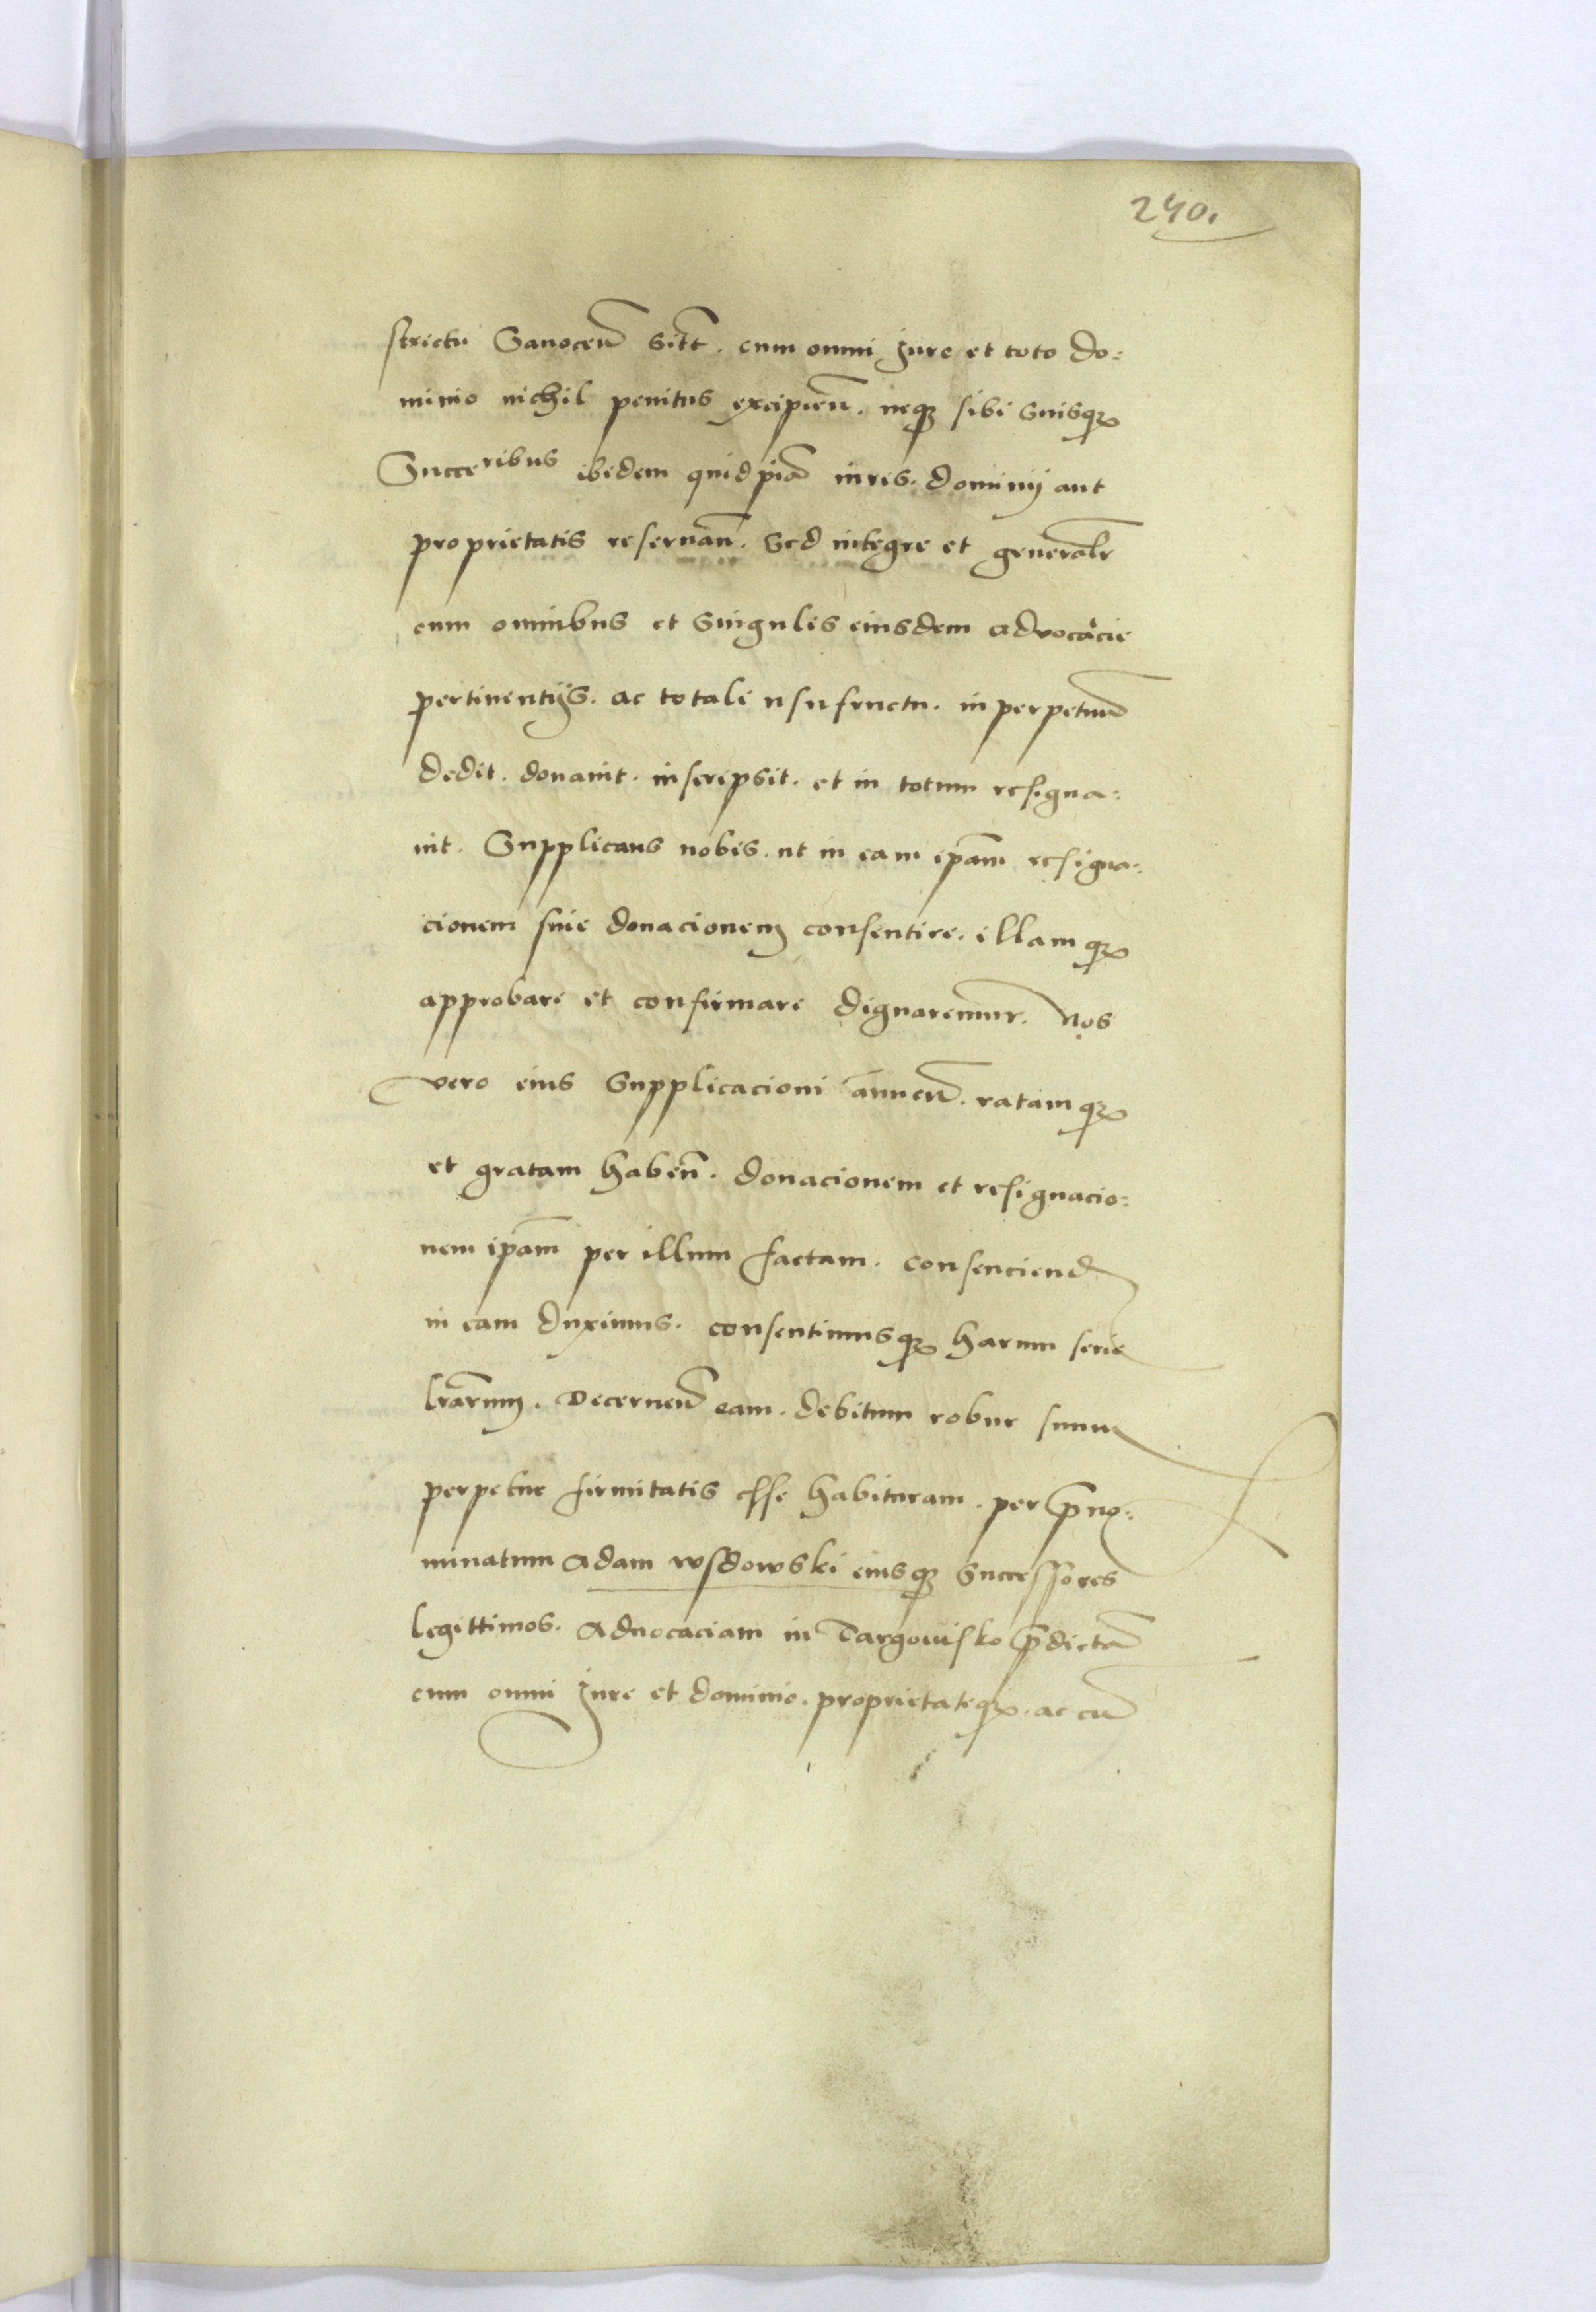 240.
strictu Sanoceñ sitt. cum omni jure et toto do=
minio nichil penitus excipieñ. neqꝫ sibi suisqꝫ
Succeribus ibidem quidpiã iuris. dominij aut
proprietatis reseruañ. Sed integre et generalr̃
cum omnibus et Singulis eiusdem advocacie
pertinentijs. ac totali usufructu. in perpetuũ
dedit. donauit. inscripsit. et in totum resigna=
uit. Supplicans nobis. ut in eam ip̃am resigna=
cionem siue donacionem consentire. illamqꝫ
approbare et confirmare dignaremur. Nos
vero eius Supplicacioni annueñ. ratamqꝫ
et gratam habeñ. donacionem et resignacio=
nem ip̃am per illum factam. consenciend
in eam duximus. consentimusqꝫ harum serie
lr̃arum. Decerneñ eam. debitum robur suum
perpetue firmitatis esse habituram. per p̃no=
minatum Adam wsdowski eiusqꝫ Successores
legittimos. Aduocaciam in Targouisko p̃dictã
cum omni jure et dominio. proprietateqꝫ. ac cũ